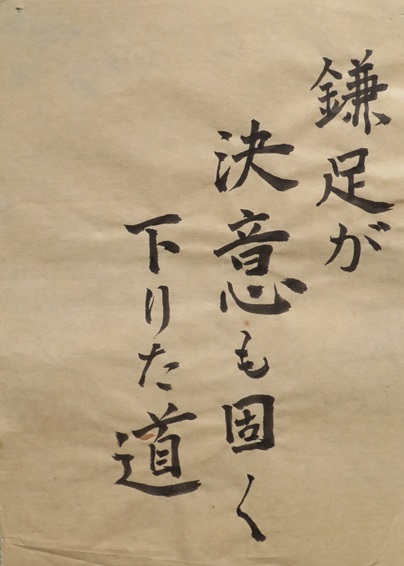 鎌足が
決意も固く
下りた道